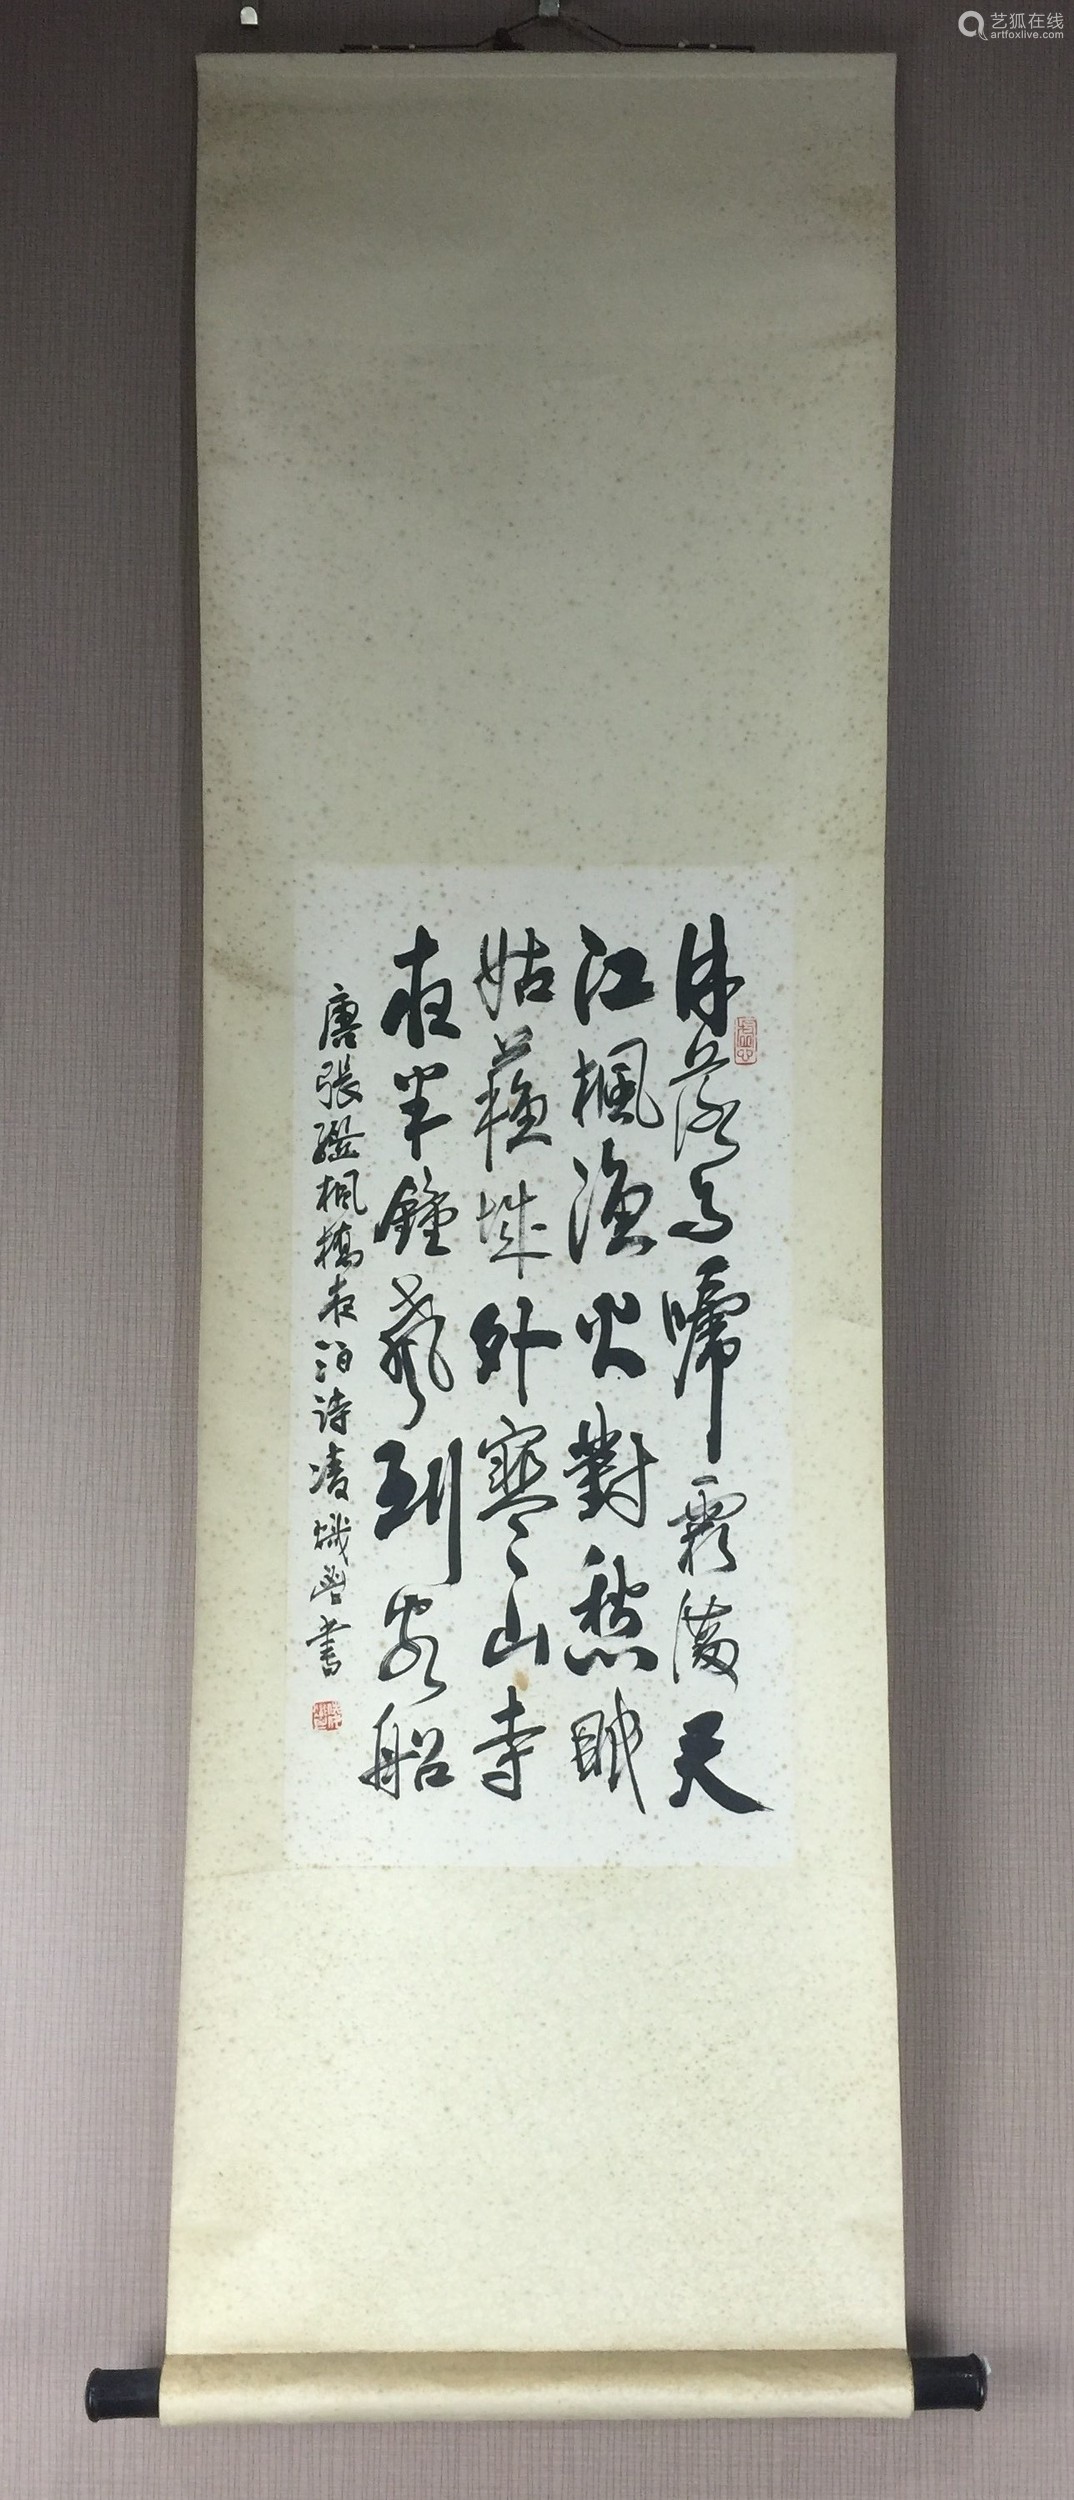 月落烏啼霜滿天
江楓漁火對愁眠
姑蘇城外寒山寺
夜半鐘聲到客船
唐張繼楓橋夜泊詩凌熾
書
艺狐在线
artfoxlive.com